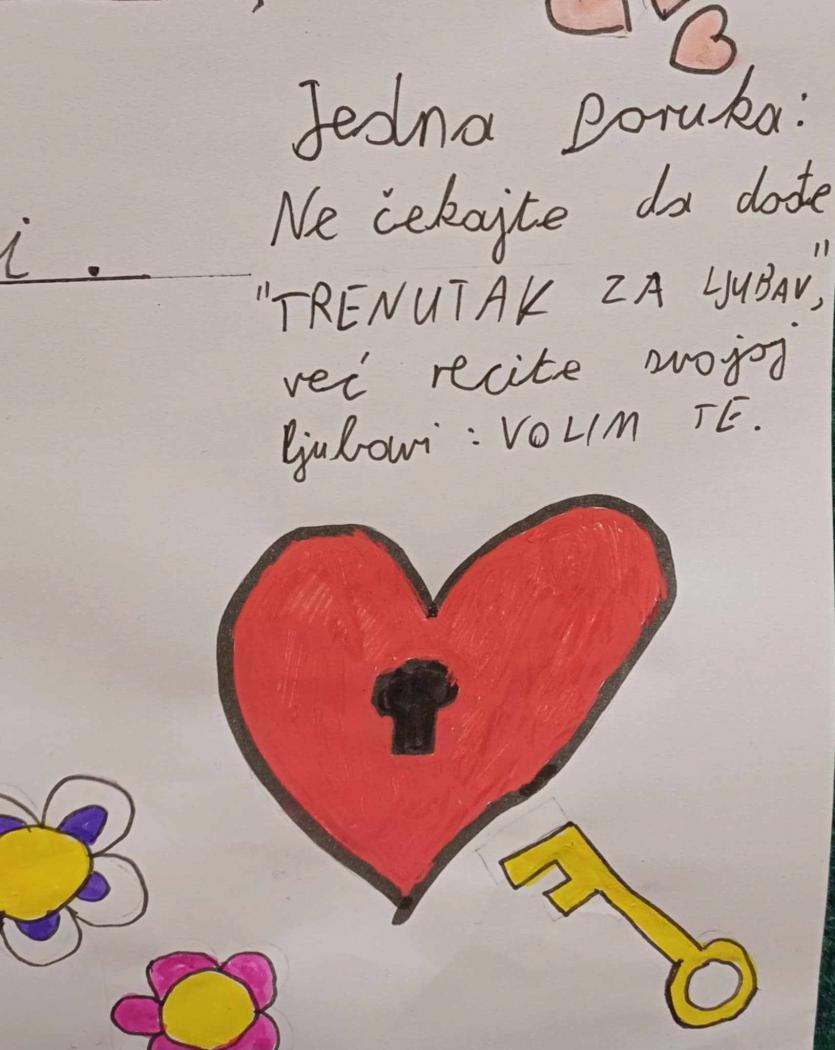 Jedna poruka:
Ne čekajte da dođe
i.
"TRENUTAK ZA LJUBAV",
već recite svojoj
ljubavi: VOLIM TE.